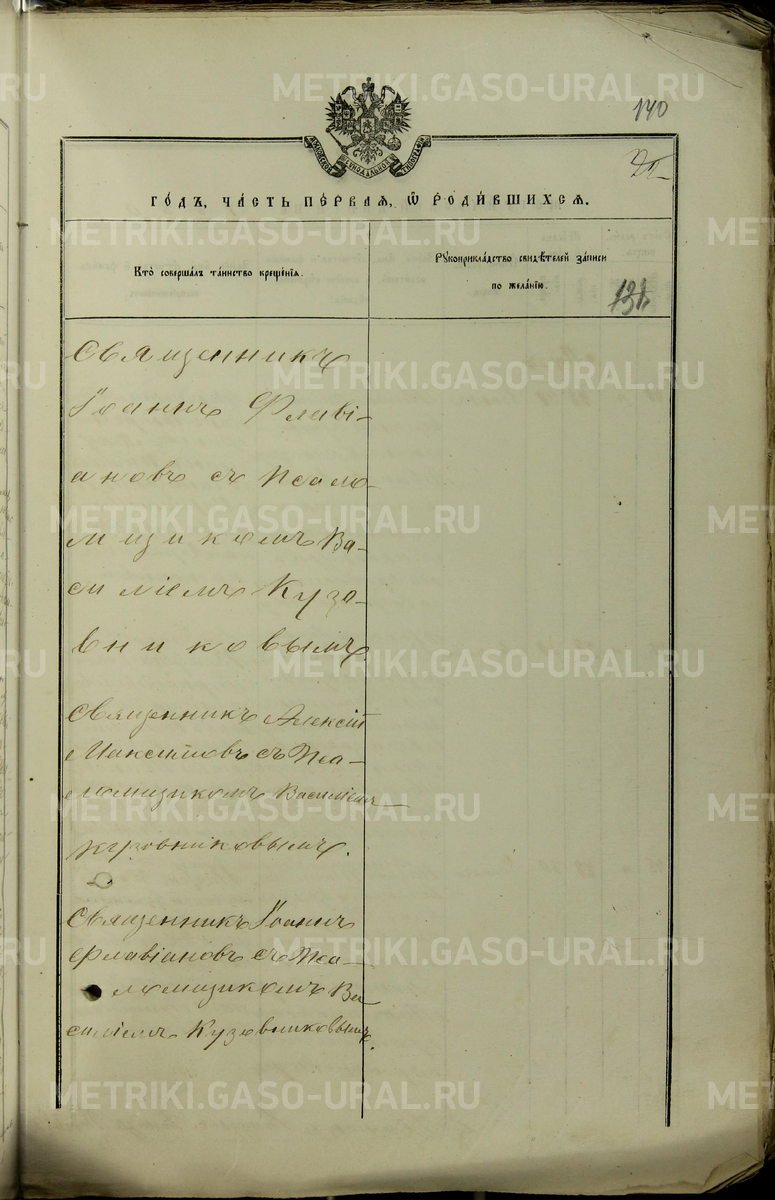 140
МОСКОВСКОЙ СѴНОДАЛЬНОЙ ТИПОГРАФІИ
ГО́ДЪ, ЧА́СТЬ ПЕ́РВАѦ, Ѡ҆ РОДИ́ВШИХСѦ.
Кто̀ соверша́лъ та́инство креще́нїѧ.
Рꙋкоприкла́дство свидѣ́телей за́писи
по жела́нїю.
131
Священникъ
Іоаннъ Флаві-
ановъ съ Псало-
мщикомъ Ва-
силіемъ Кузо-
вниковымъ
Священникъ Алексій
Максимовъ съ Пса-
ломщикомъ Василіемъ
Кузовниковымъ.
Священникъ Іоаннъ
Флавіановъ съ Пса-
ломщикомъ Ва-
силіемъ Кузовниковымъ.
METRIKI.GASO-URAL.RU